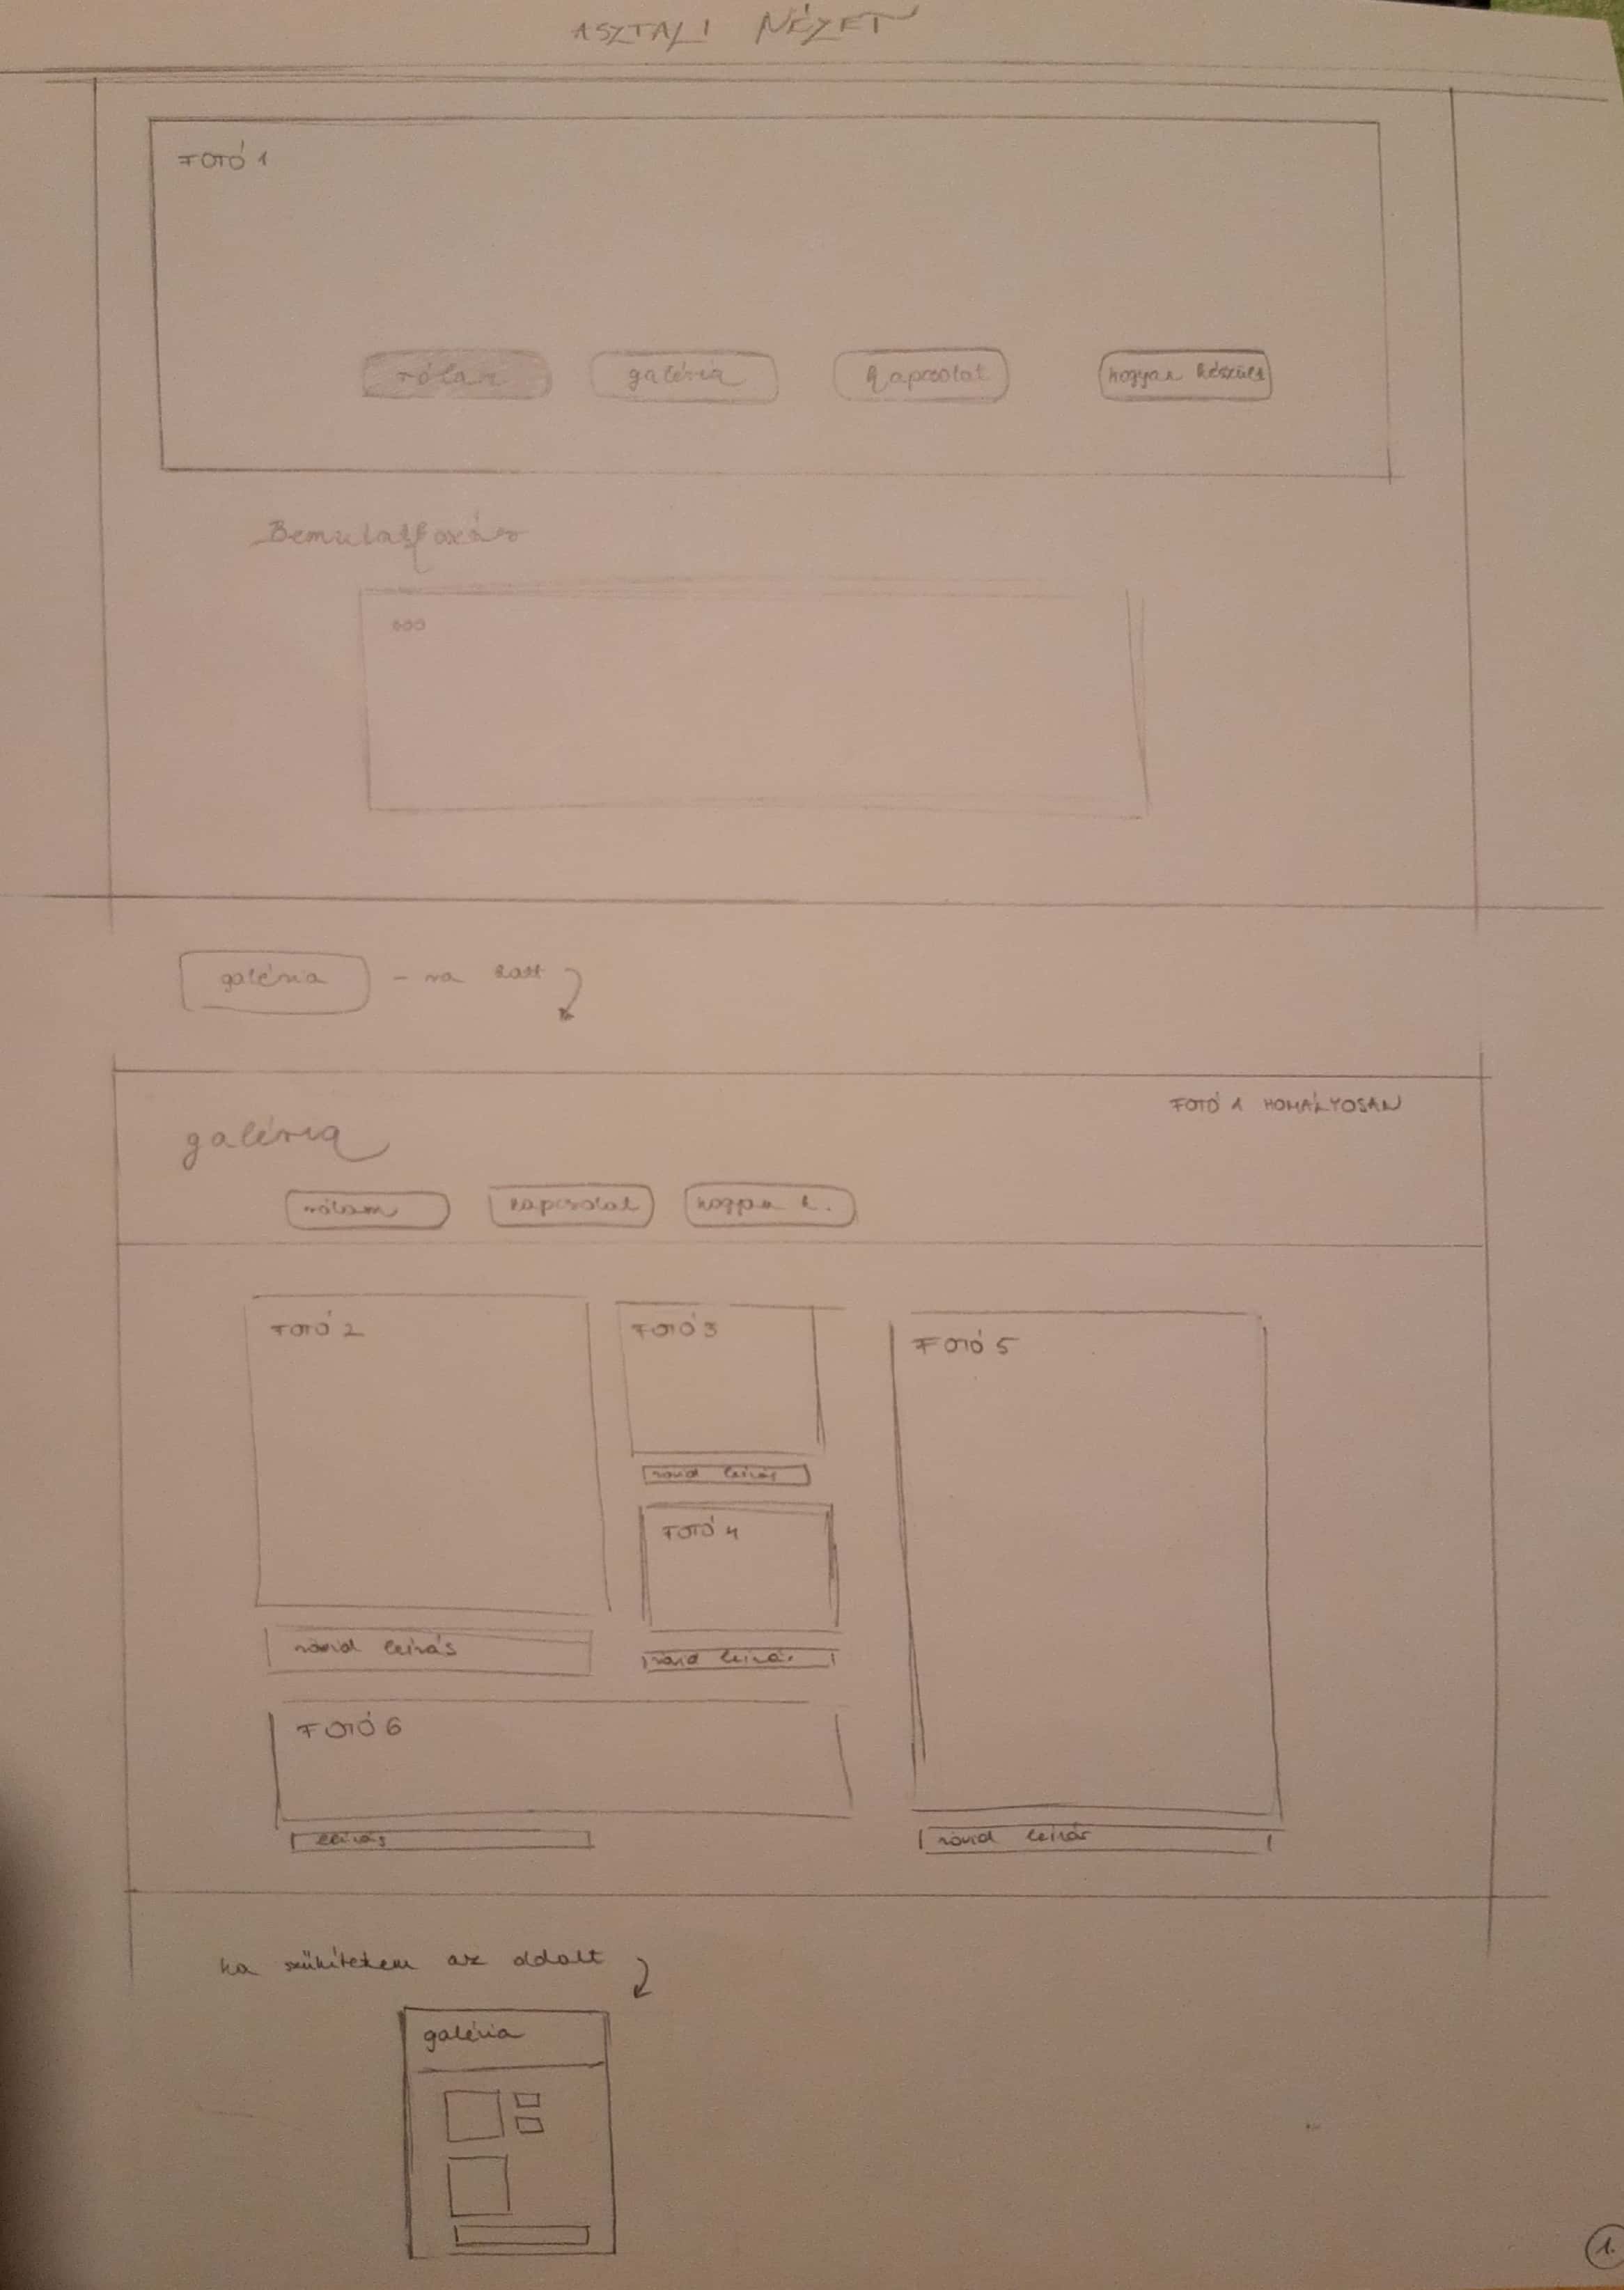 ASZTALI NÉZET
FOTÓ 1
rólam galéria kapcsolat hogyan készült
Bemutatkozás
galéria - ra katt
FOTÓ 1 HOMÁLYOSAN
galéria
rólam kapcsolat hogyan k.
FOTÓ 2 FOTÓ 3 FOTÓ 5
rövid leírás
FOTÓ 4
rövid leírás rövid leírás
FOTÓ 6
leírás rövid leírás
ha szűkítem az oldalt
galéria
1.